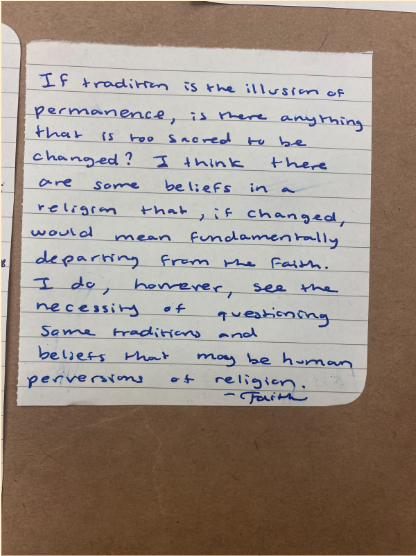 If tradition is the illusion of
permanence, is there anything
that is too sacred to be
changed? I think there
are some beliefs in a
religion that, if changed,
would mean fundamentally
departing from the faith.
I do, however, see the
necessity of questioning
some traditions and
beliefs that may be human
perversions of religion.
- Faith